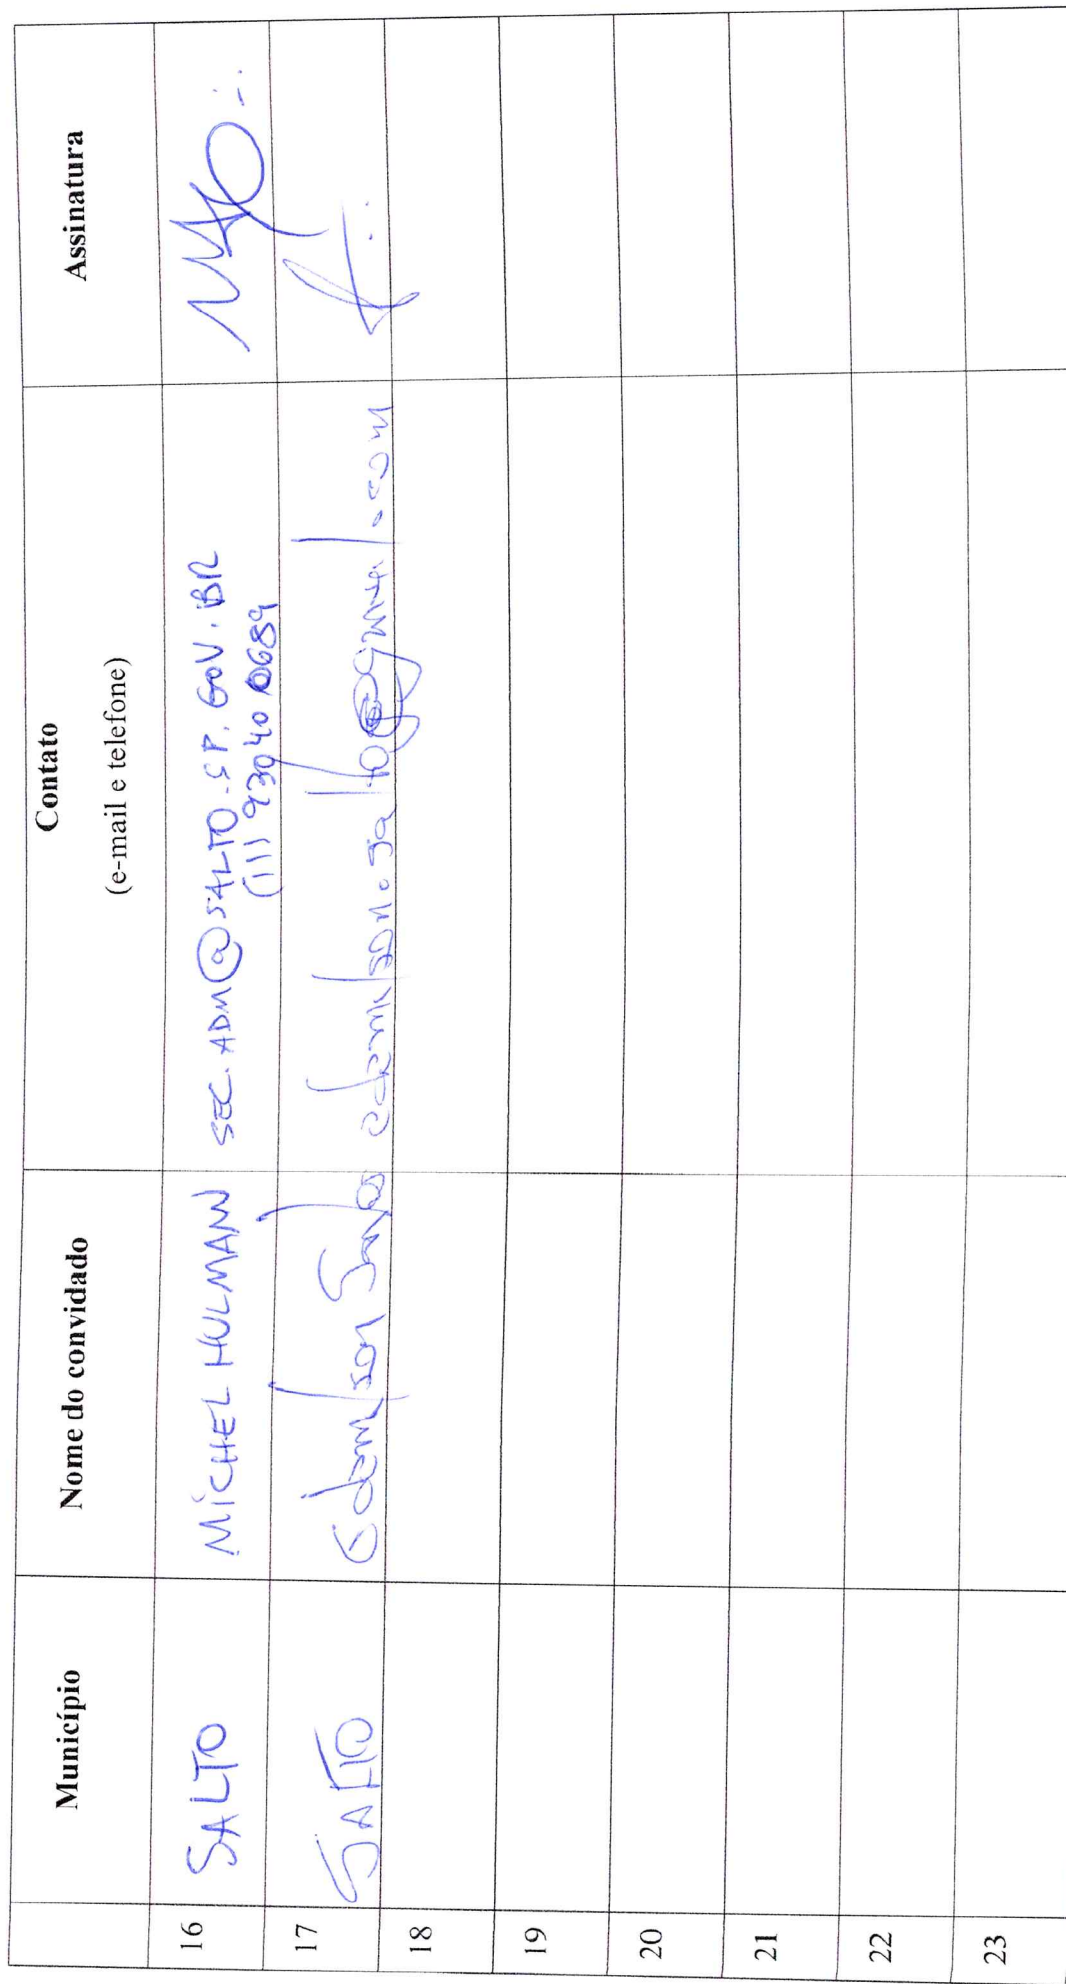 Município Nome do convidado Contato Assinatura
(e-mail e telefone)
16 SALTO MICHEL HULMANN SEC.ADM@SALTO.SP.GOV.BR
(11) 93040 0689
17 SALTO Edemilson Santos edemilson.salto@gmail.com
18
19
20
21
22
23